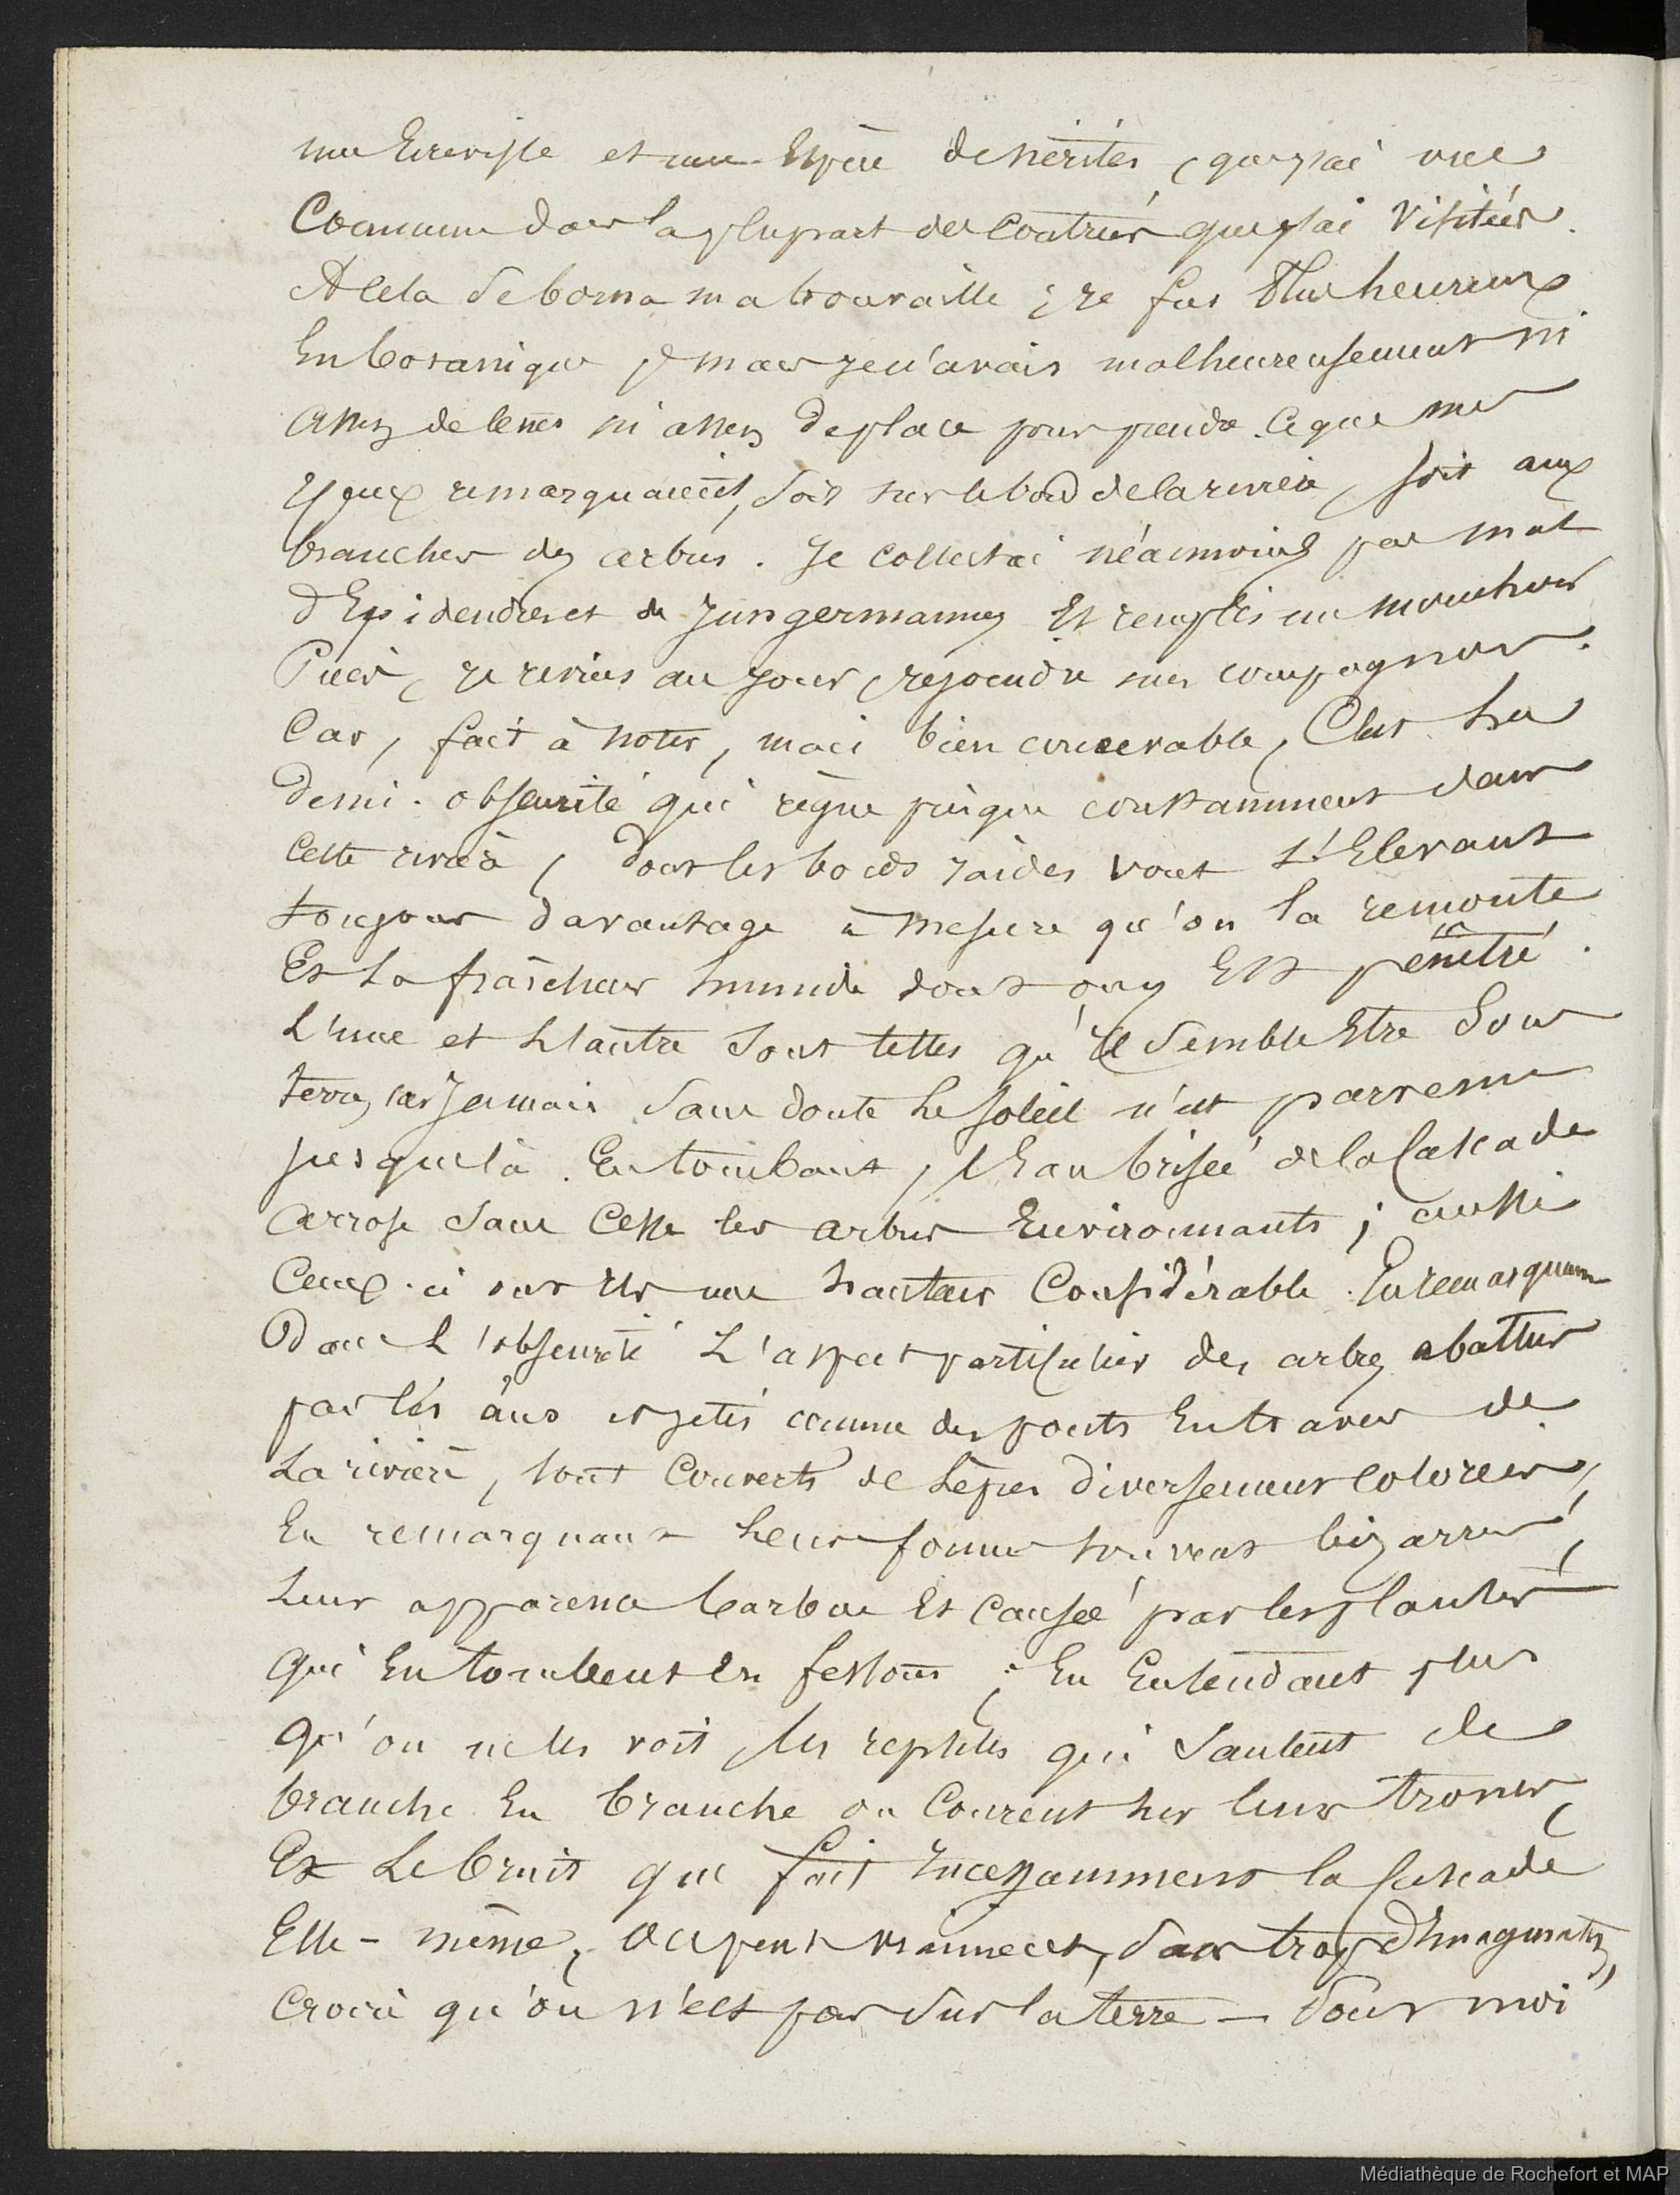 une Ecrevisse et une Espèce de nérites, que j'ai vue
Commune dans la plupart des Contrées que j'ai Visitées.
A cela se borna ma trouvaille ; je fus Plus heureux
En botanique, mais je n'avais malheureusement ni
assez de tems ni assez de place pour prendre ce que mes
yeux remarquaient, soit sur le bord de la rivière, soit aux
branches des arbres. Je collectai néanmoins pas mal
d'Epidendres et de Jungermannes Et remplis un mouchoir
Puis, je revins au jour, rejoindre mes compagnons.
Car, fait à noter, mais bien concevable, C'est La
demi-obscurité qui règne presque constamment dans
cette rivière, dont les bords raides vont s'Elevant
toujours davantage à mesure qu'on la remonte
Et la fraîcheur humide dont on y Est pénétré.
L'une et L'autre sont telles qu'Il semble Etre Sous
terre, car Jamais sans doute Le soleil n'est parvenu
jusque là. En tombant, l'Eau brisée de la Cascade
arrose sans Cesse les arbres Environnants ; aussi
Ceux-ci sont Ils une hauteur Considérable. En remarquant
Dans L'obscurité L'aspect particulier des arbres abattus
par les ans et jetés comme des ponts En travers de
La rivière, tout Couverts de Lèpres diversement colorées,
En remarquant Leurs formes souvent bizarres,
Leur apparence barbue Et causée par les plantes
qui En tombent En festons ; En Entendant plus
qu'on ne les voit, les reptiles qui Sautent de
branche En branche ou Courent sur leurs troncs,
Et Le bruit que fait Incessamment la Cascade
Elle-même, On peut vraiment, sans trop d'Imagination,
Croire qu'on n'est pas sur la terre — Pour moi
Médiathèque de Rochefort et MAP